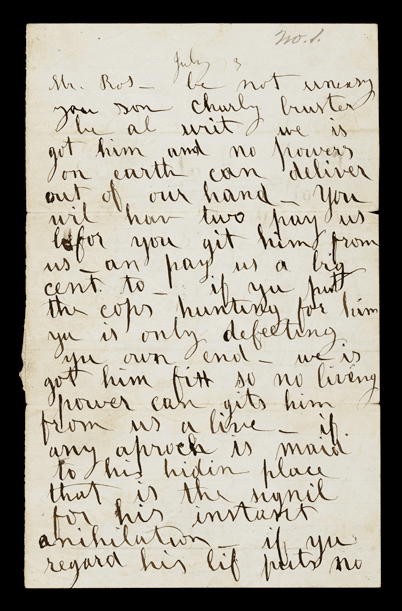 No. 1.
July 3
Mr. Ros— be not uneasy
you son charly bruster
be al writ we is
got him and no powers
on earth can deliver
out of our hand— You
wil hav two pay us
befor you git him from
us— an pay us a big
cent to— if you put
the cops hunting for him
yu is only defeeting
yu own end— we is
got him fitt so no living
power can gits him
from us a live— if
any aproch is maid
to his hidin place
that is the signil
for his instant
anihilation— if yu
regard his lif puts no